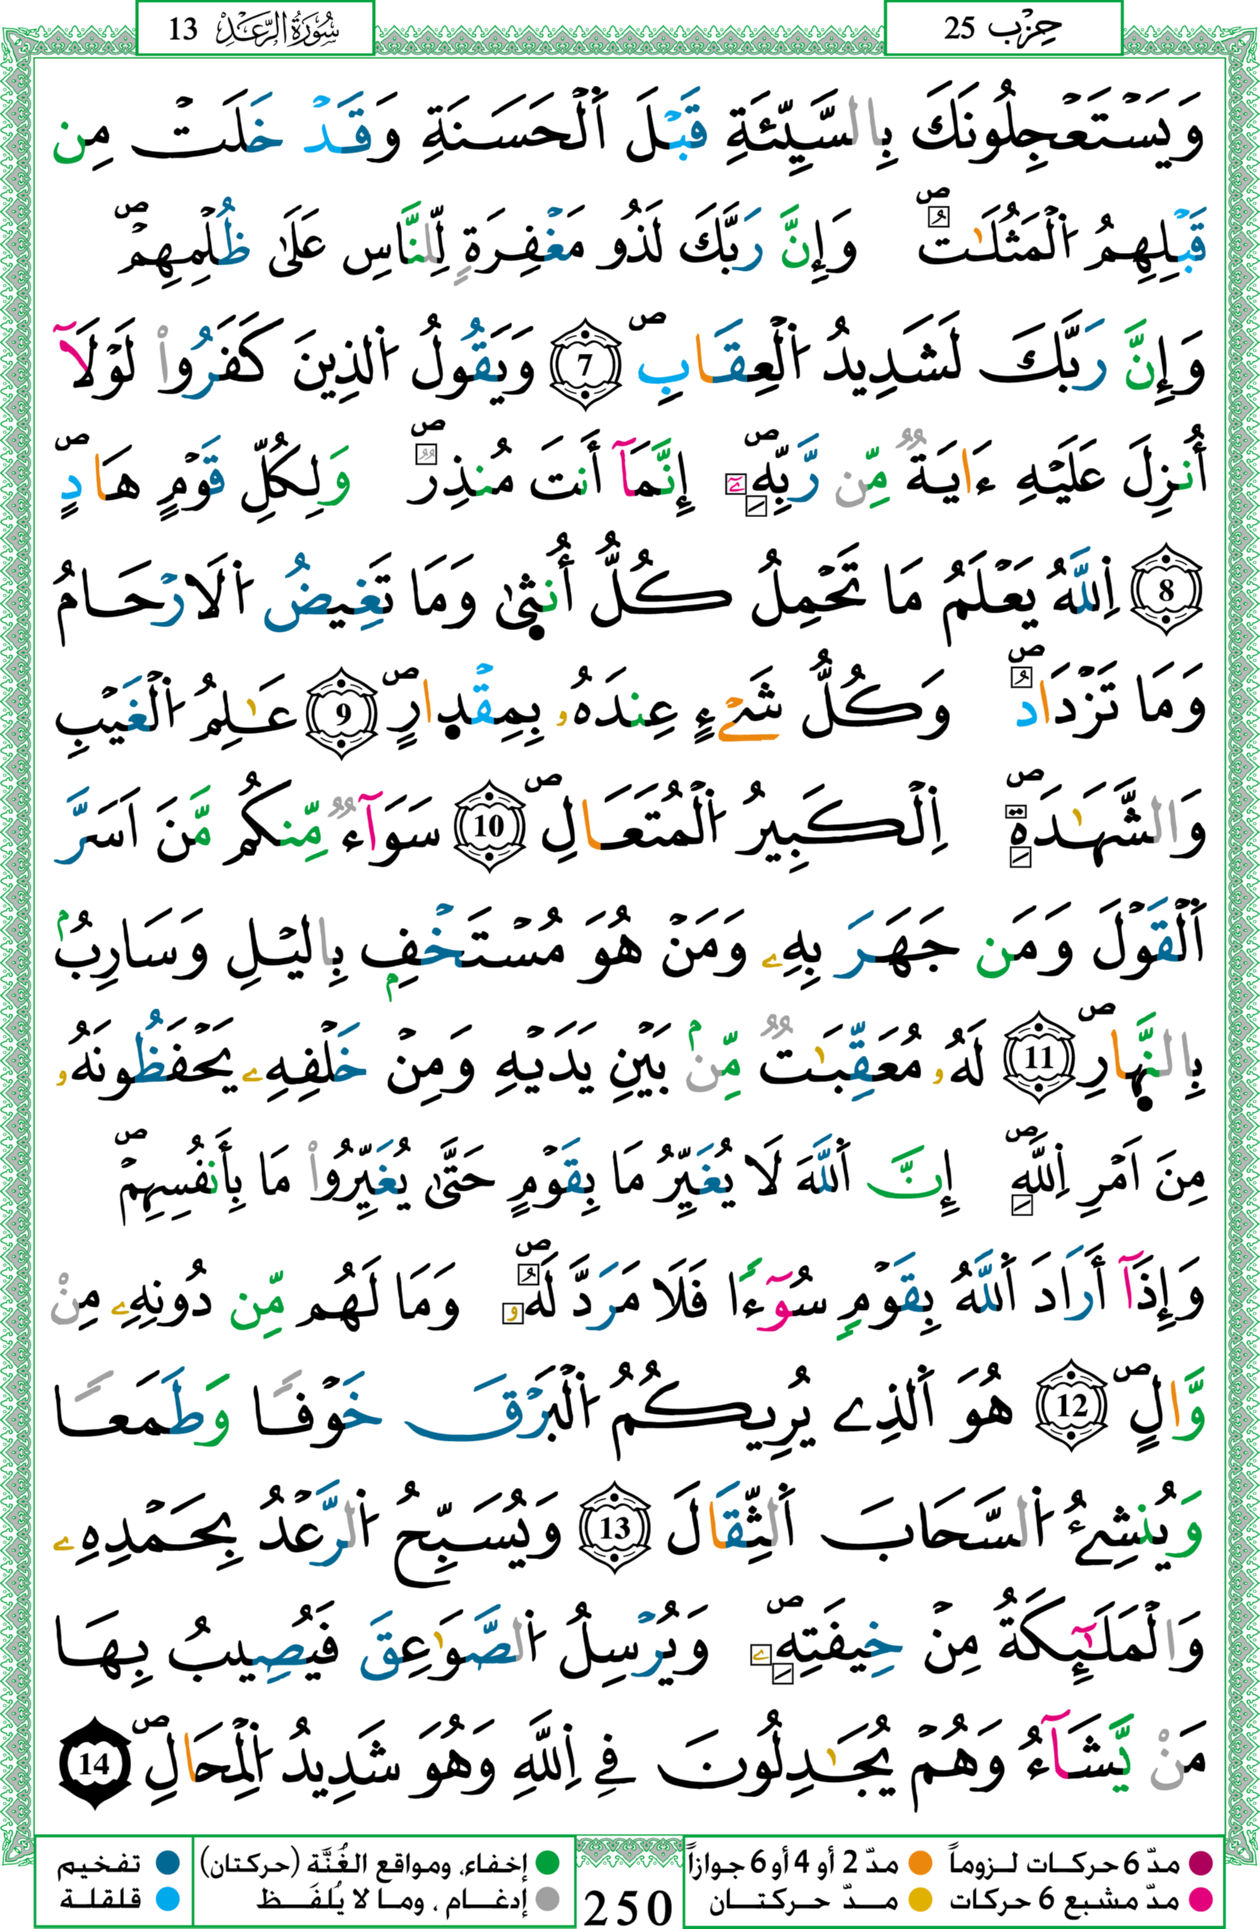 سُورَةُ الرَّعْدِ 13
حِزْب 25
وَيَسْتَعْجِلُونَكَ بِالسَّيِّئَةِ قَبْلَ اَلْحَسَنَةِ وَقَدْ خَلَتْ مِن
قَبْلِهِمُ اُلْمَثُلَٰتُۖ وَإِنَّ رَبَّكَ لَذُو مَغْفِرَةٍ لِّلنَّاسِ عَلَىٰ ظُلْمِهِمْۖ
وَإِنَّ رَبَّكَ لَشَدِيدُ اُلْعِقَابِۖ 7 وَيَقُولُ اُلذِينَ كَفَرُواْ لَوْلَآ
أُنزِلَ عَلَيْهِ ءَايَةٌ مِّن رَّبِّهِۦٓۖ إِنَّمَآ أَنتَ مُنذِرٌۖ وَلِكُلِّ قَوْمٍ هَادٍۖ
8 اِللَّهُ يَعْلَمُ مَا تَحْمِلُ كُلُّ أُنثَىٰ وَمَا تَغِيضُ اُلَارْحَامُ
وَمَا تَزْدَادُۖ وَكُلُّ شَےْءٍ عِندَهُۥ بِمِقْدَارٍۖ 9 عَٰلِمُ اُلْغَيْبِ
وَالشَّهَٰدَةِۖ اِلْكَبِيرُ اُلْمُتَعَالِۖ 10 سَوَآءٌ مِّنكُم مَّنَ اَسَرَّ
اَلْقَوْلَ وَمَن جَهَرَ بِهِۦ وَمَنْ هُوَ مُسْتَخْفِۢ بِاليْلِ وَسَارِبُۢ
بِالنَّهَارِۖ 11 لَهُۥ مُعَقِّبَٰتٌ مِّنۢ بَيْنِ يَدَيْهِ وَمِنْ خَلْفِهِۦ يَحْفَظُونَهُۥ
مِنَ اَمْرِ اِللَّهِۖ إِنَّ اَللَّهَ لَا يُغَيِّرُ مَا بِقَوْمٍ حَتَّىٰ يُغَيِّرُواْ مَا بِأَنفُسِهِمْۖ
وَإِذَآ أَرَادَ اَللَّهُ بِقَوْمٍ سُوٓءًا فَلَا مَرَدَّ لَهُۥۖ وَمَا لَهُم مِّن دُونِهِۦ مِنْ
وَّالٍۖ 12 هُوَ اَلذِے يُرِيكُمُ اُلْبَرْقَ خَوْفًا وَطَمَعًا
وَيُنشِئُ اُلسَّحَابَ اَلثِّقَالَ 13 وَيُسَبِّحُ اُلرَّعْدُ بِحَمْدِهِۦ
وَالْمَلَٰٓئِكَةُ مِنْ خِيفَتِهِۦۖ وَيُرْسِلُ اُلصَّوَٰعِقَ فَيُصِيبُ بِهَا
مَنْ يَّشَآءُ وَهُمْ يُجَٰدِلُونَ فِے اِللَّهِ وَهُوَ شَدِيدُ اُلْمِحَالِۖ 14
مدّ 6 حركات لـزوماً مدّ 2 أو 4 أو 6 جوازاً إخفاء، ومواقع الغُنَّة (حركتان) تفخيم
مدّ مشبع 6 حركات مدّ حركتـان إدغـام ، ومـا لا يُلفَـظ قلقلة
250